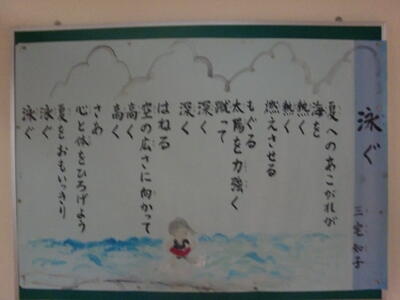 泳ぐ
三宅知子
夏へのあこがれが
海を
熱く
熱く
燃えさせる
もぐる
太陽を力強く
蹴って
深く
深く
はねる
空の広さに向かって
高く
高く
さあ
心と体をひろげよう
夏をおもいっきり
泳ぐ
泳ぐ